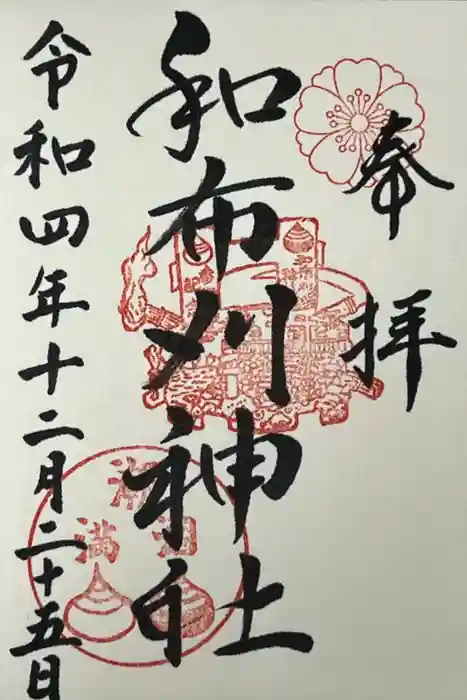 奉拝
和布刈神社
令和四年十二月二十五日